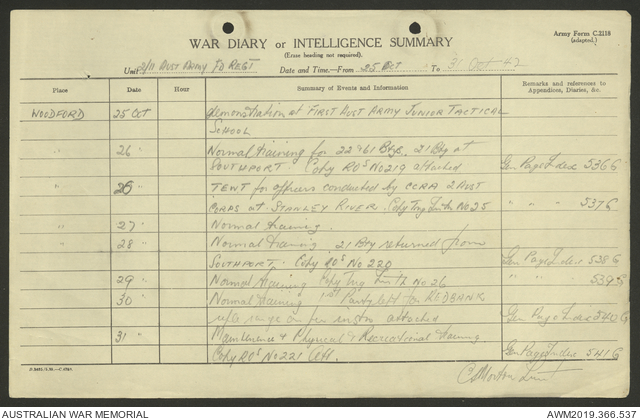 Army Form C.2118
(adapted.)
WAR DIARY or INTELLIGENCE SUMMARY
(Erase heading not required).
Unit 2/11 AUST ARMY FD REGT Date and Time—From 25 OCT To 31 OCT 42
Place Date Hour Summary of Events and Information Remarks and references to
Appendices, Diaries, &c.
WOODFORD 25 OCT demonstration at FIRST AUST ARMY JUNIOR TACTICAL
SCHOOL
" 26 " Normal training for 22 & 61 Btys. 21 Bty at
SOUTHPORT Copy ROs No 219 attached Gen Page Index 536G
" 26 " TEWT for officers conducted by CCRA 2 AUST
CORPS at STANLEY RIVER. Copy Trg No 25 " " " 537G
" 27 " Normal training.
" 28 " Normal training, 21 Bty returned from
SOUTHPORT. Copy ROs No 220 Gen Page Index 538G
29 Normal training Copy Trg No 26 " " " 539G
30 Normal training 1st Party left for REDBANK
rifle range as per instns attached Gen Page Index 540G
31 " Maintenance & Physical & Recreational training
Copy ROs No 221 att. Gen Page Index 541G
C Morton Lieut
AUSTRALIAN WAR MEMORIAL AWM2019.366.537